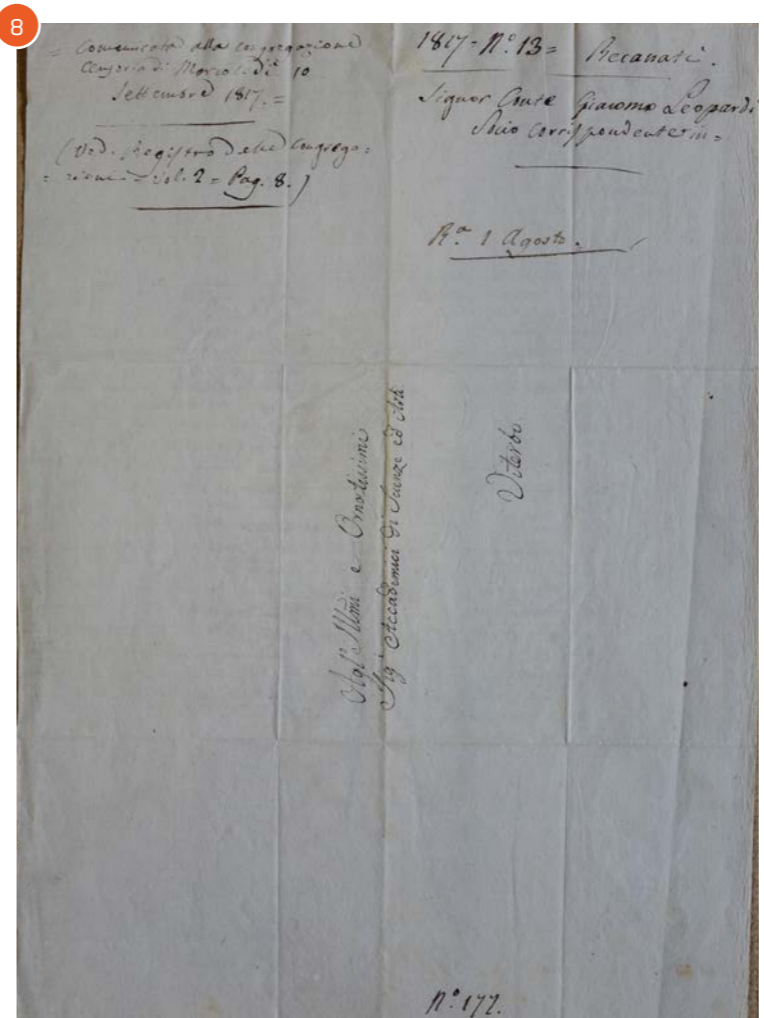 8
= Comunicata alla congregazione
Censoria di Mercoledì 10
Settembre 1817. =
(Ved. Registro delle Congrega=
= zioni = Vol. 2 = Pag. 8.)
1817 - N.º 13 = Recanati.
Signor Conte Giacomo Leopardi
Socio corrispondente
R.ª 1 Agosto.
Agl'Illmi e Ornatissimi
Sigri Accademici di Scienze ed Arti
Viterbo.
N.º 177.